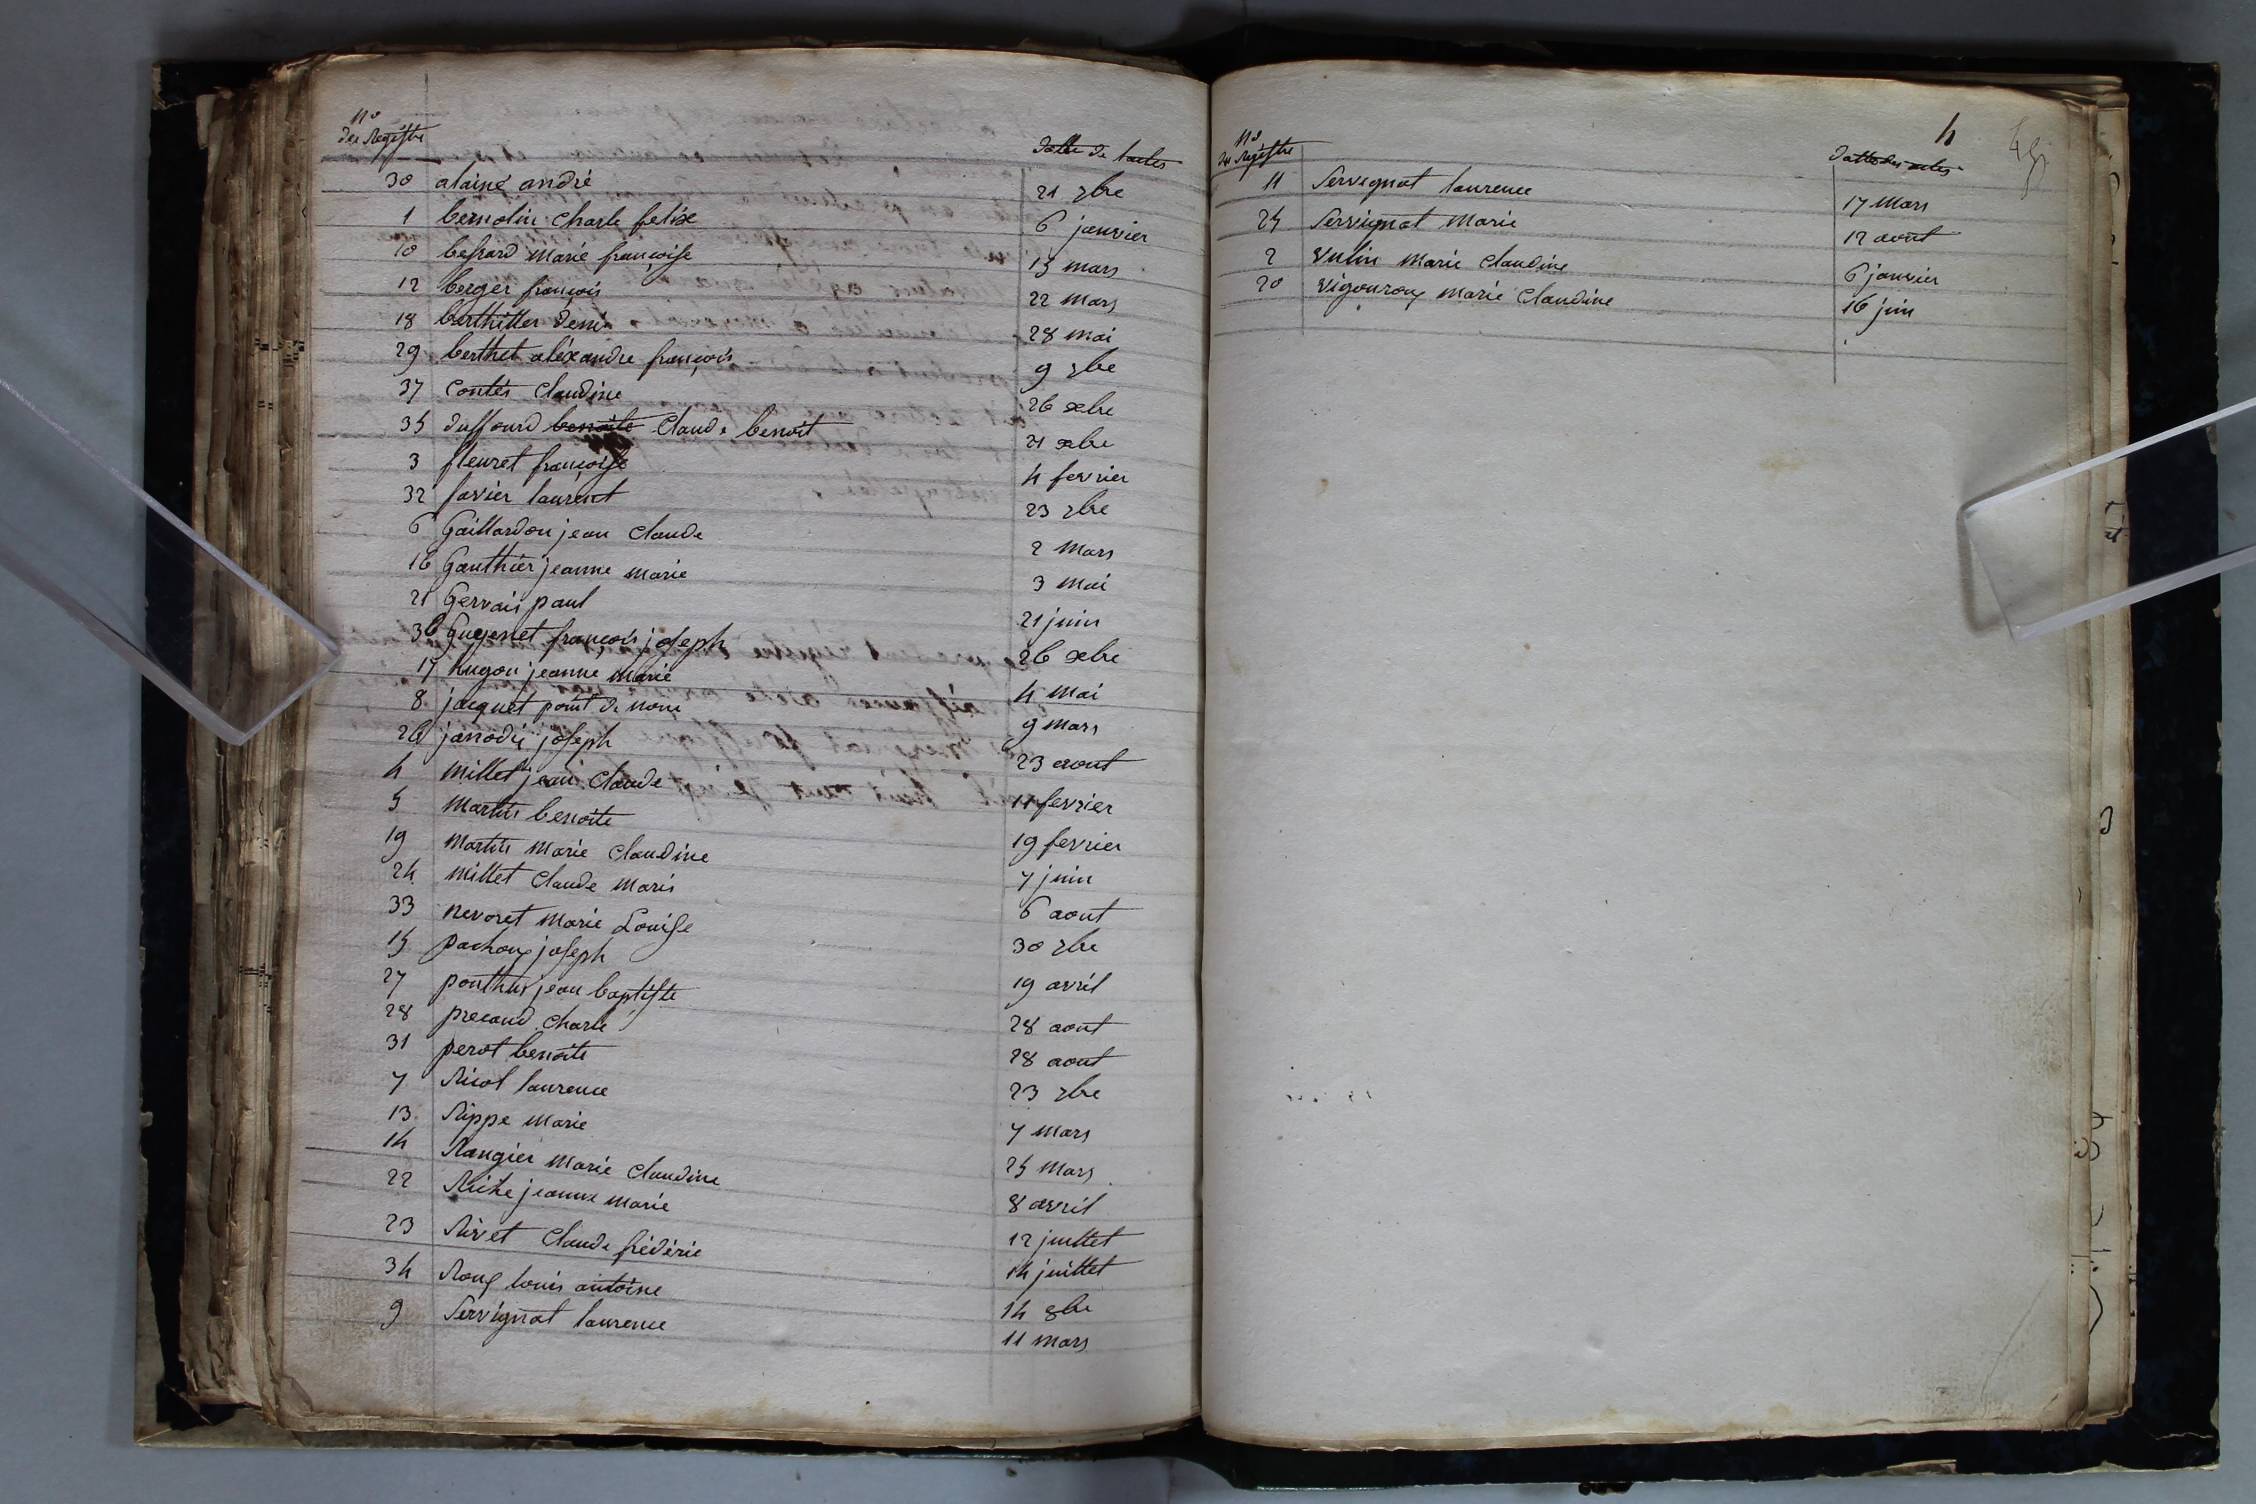 No
des Registre
datte de lactes
30 alaine andré 21 7bre
1 bernolin charle felixe 6 janvier
10 bessard marie françoise 15 mars
12 berger françois 22 mars
18 berthillier denis 28 mai
29 berthet alexandre françois 9 7bre
37 contes claudine 26 xbre
35 duffourd benoite claude benoit 21 xbre
3 fleuret françoise 4 fevrier
32 favier laurent 23 7bre
6 Gaillardon jean claude 2 mars
16 Gauthier jeanne marie 3 mai
21 Gervais paul 21 juin
36 Guyenet françois joseph 26 xbre
17 hugon jeanne marie 4 mai
8 jacquet point de nom 9 mars
26 janody joseph 23 aout
4 millet jean claude 11 fevrier
5 martin benoite 19 fevrier
19 martin marie claudine 7 juin
24 millet claude marie 6 aout
33 nevoret marie Louise 30 7bre
15 pachoux joseph 19 avril
27 ponthus jean baptiste 28 aout
28 precaud charle 28 aout
31 perot benoite 23 7bre
7 Ricol laurence 7 mars
13 Rippe marie 25 mars
14 Rangier marie claudine 8 avril
22 Riche jeanne marie 12 juillet
23 Rivet claude frédéric 14 juillet
34 Roux louis antoine 14 8bre
9 Servignat laurence 11 mars
4
No
des Registre
datte des actes
11 Servignat laurence 17 mars
25 Servignat marie 12 aout
2 vulin marie claudine 6 janvier
20 vigouroux marie claudine 16 juin